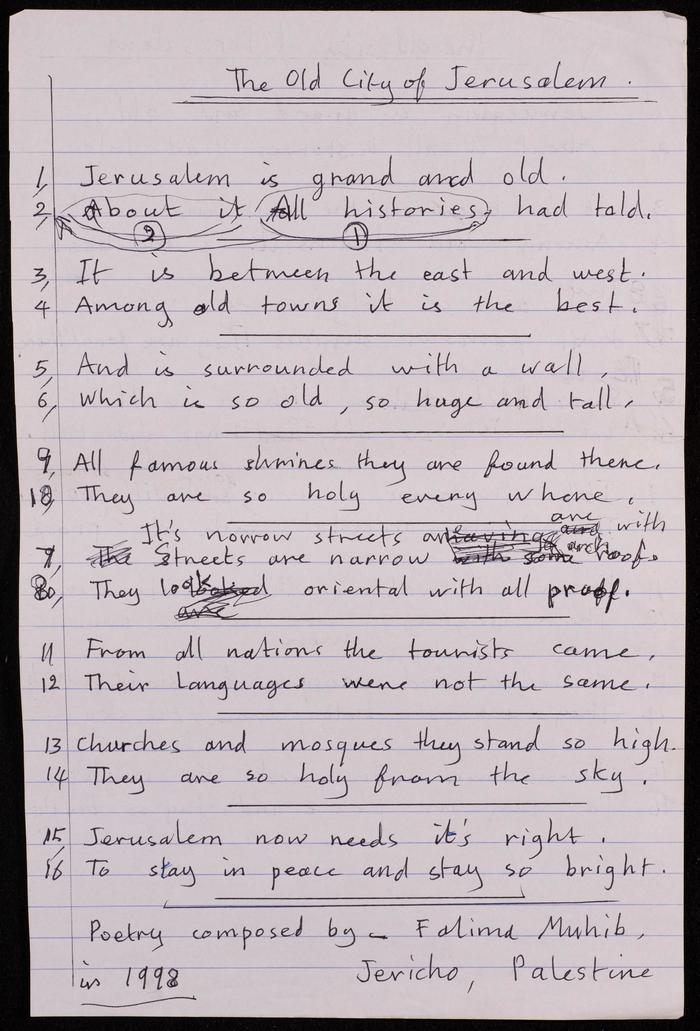 The Old City of Jerusalem.
1, Jerusalem is grand and old.
2, About it All histories, had told.
2 1
3, It is between the east and west.
4 Among old towns it is the best.
5, And is surrounded with a wall,
6, which is so old, so huge and tall,
9, All famous shrines they are found there.
10, They are so holy every where.
are
It's norrow streets with
7, Streets are narrow arch roof.
8, They look oriental with all proof.
11 From all nations the tourists came,
12 Their languages were not the same.
13 Churches and mosques they stand so high.
14 They are so holy from the sky.
15, Jerusalem now needs it's right.
16 To stay in peace and stay so bright.
Poetry composed by - Falima Muhib,
in 1998 Jericho, Palestine